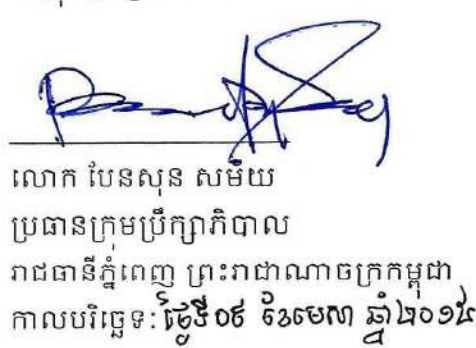 លោក បែនសុន សម័យ
ប្រធានក្រុមប្រឹក្សាភិបាល
រាជធានីភ្នំពេញ ព្រះរាជាណាចក្រកម្ពុជា
កាលបរិច្ឆេទ: ថ្ងៃទី០៩ ខែមេសា ឆ្នាំ២០១៥